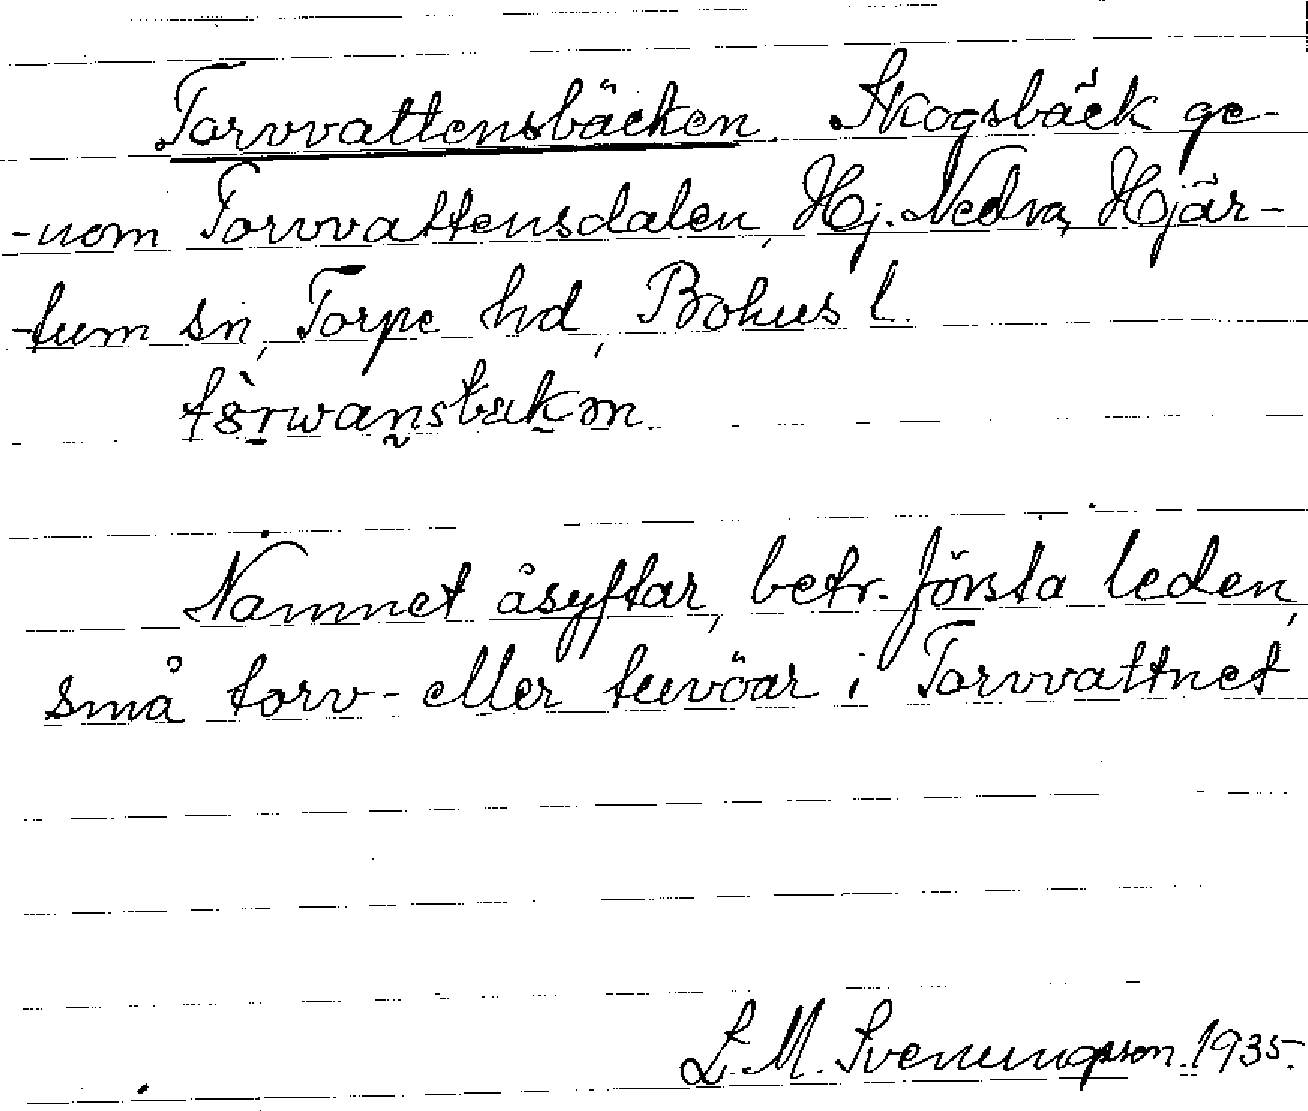 Torvvattensbäcken. Skogsbäck ge-
-nom Torvvattensdalen, Hj. Nedra, Hjär-
-tum sn, Torpe hd, Bohus l.
Namnet åsyftar, betr. första leden,
små torv- eller tuvöar i Torvvattnet
L. M. Svenungsson. 1935.